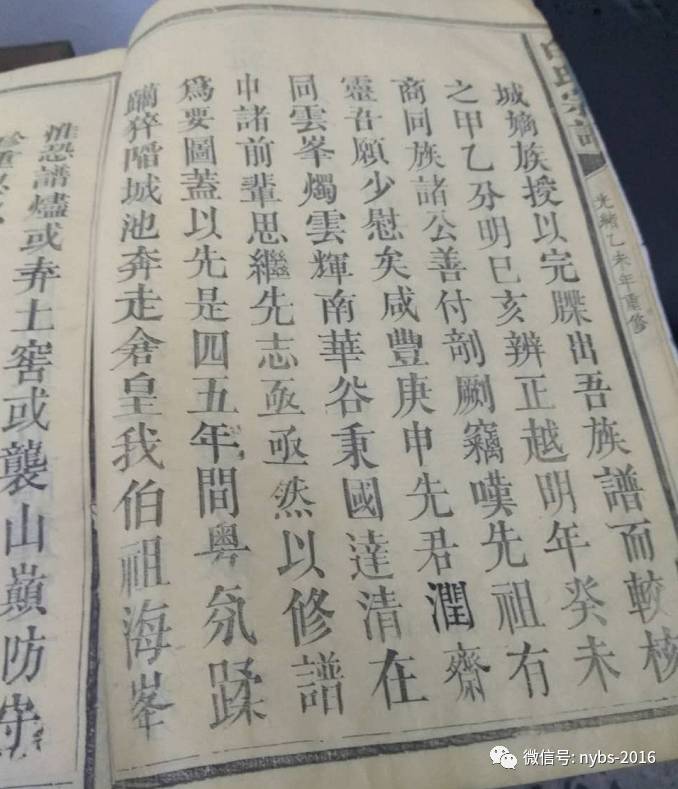 氏宗譜
光緒乙未年重修
城嫡族授以完牒出吾族譜而較核
之甲乙分明巳亥辨正越明年癸未
商同族諸公善付剞劂竊嘆先祖有
靈吾願少慰矣咸豐庚申先君潤齋
同雲峯燭雲輝南華谷秉國達清在
中諸前輩思繼先志亟亟然以修譜
爲要圖蓋以先是四五年間粵氛蹂
躪猝陷城池奔走倉皇我伯祖海峯
惟恐譜燼或弆土窖或襲山巔防守
珍重
微信号: nybs-2016